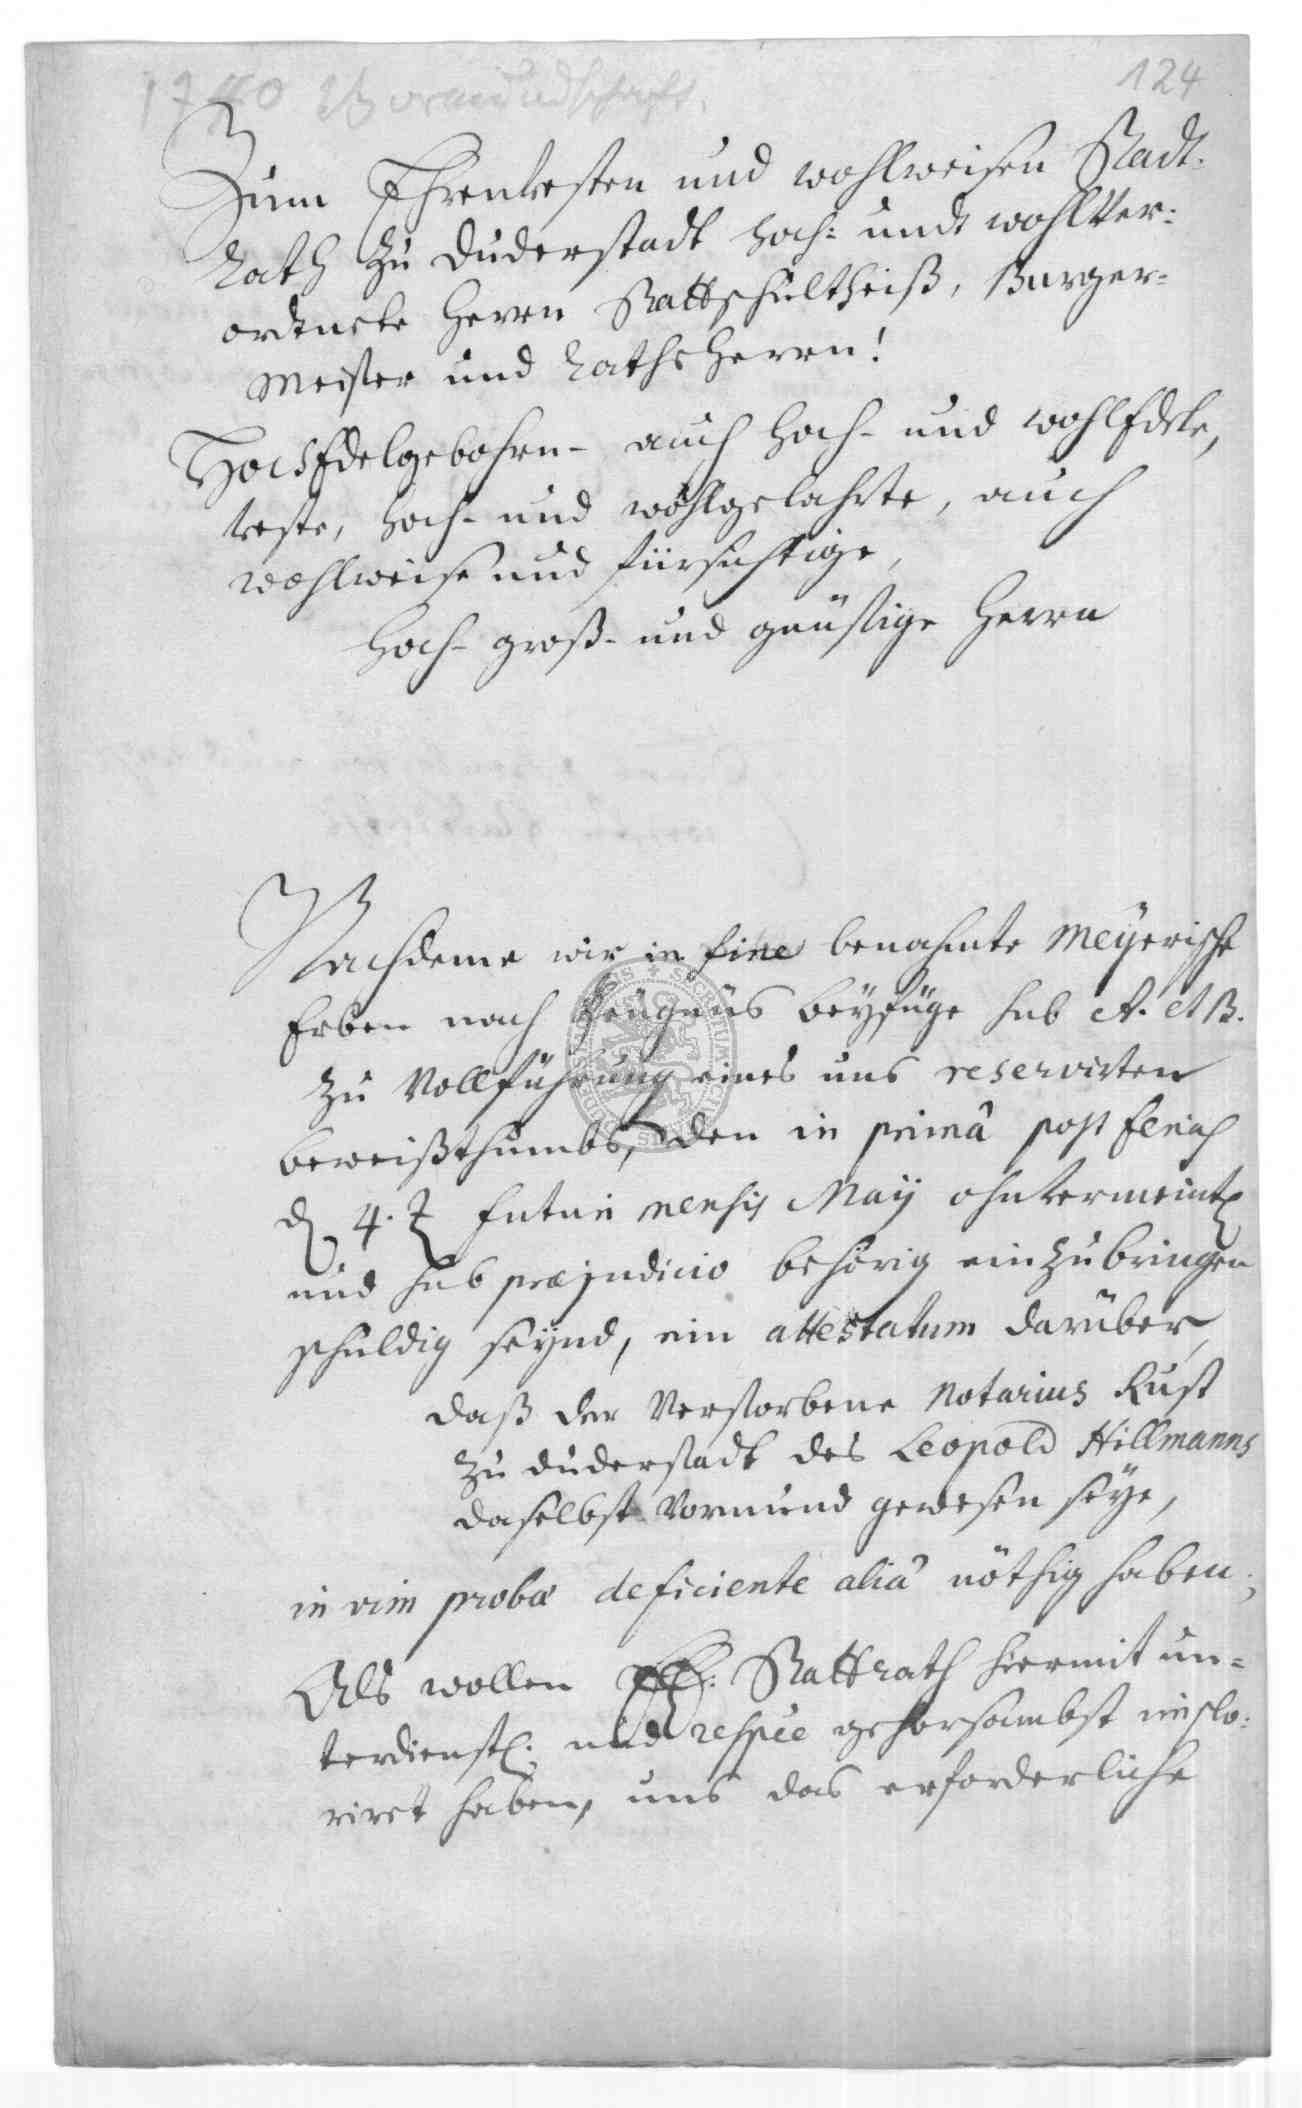 124
1740 Vormundschafft.
Zum Ehrenvesten und wohlweisen Stadt-
Rath zu Duderstadt hoch: undt wohlver:
ordtnete Herrn Stattschultheiß, Burger-
Meister und Rathsherrn!
HochEdelgebohrn- auch hoch- und wohlEdle,
veste, hoch- und wohlgelahrte, auch
wohlweise und fürsichtige,
hoch- groß- und günstige Herrn
Nachdeme wir in fine benahmte Meyerische
Erben nach Zeugnüs beyfüge sub A. et B.
zu Vollführung eines uns reservirten
beweißthumbs, den in primâ post ferias
d. 4. futuri mensis Maij ohnvermeintl.
und sub præjudicio behörig einzubringen
schuldig seynd, ein attestatum darüber,
daß der Verstorbene Notarius Rust
zu Duderstadt des Leopold Hillmanns
daselbst Vormund gewesen seye,
in vim probæ deficiente aliâ nöthig haben;
Als wollen Stattrath hiermit un-
terdienstl. und respee gehorsambst implo:
riret haben, uns das erforderliche